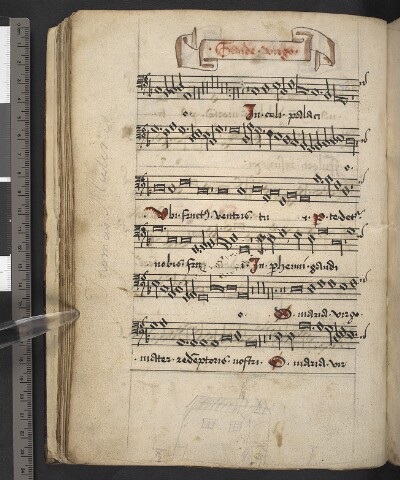 Gaude virgo
o In celi palaci
o
Vbi fruct9 ventris tu i. P te det
nobis fru In phenni gaudi
o O maria virgo
mater redeptoris nostri. O maria vir